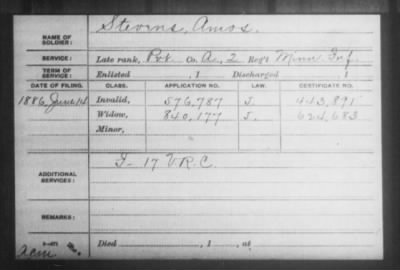 Stevens, Amos.
NAME OF SOLDIER:
SERVICE: Late rank, Pvt. Co. A., 2 Reg't Minn Inf.
TERM OF SERVICE: Enlisted , 1 Discharged , 1
DATE OF FILING. CLASS. APPLICATION NO. LAW. CERTIFICATE NO.
1886 June 14 Invalid, 576,787 J. 443,891
Widow, 840,177 J. 624,683
Minor,
I- 17 V.R.C.
ADDITIONAL SERVICES:
REMARKS:
Died , 1 , at